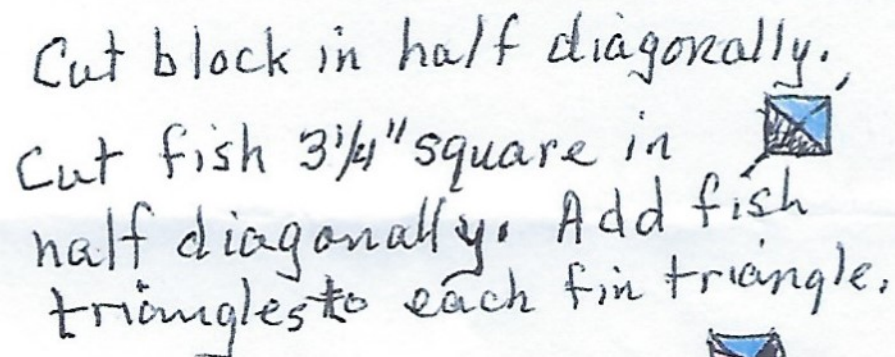 Cut block in half diagonally.
Cut fish 3 1/4" square in
half diagonally. Add fish
triangles to each fin triangle.